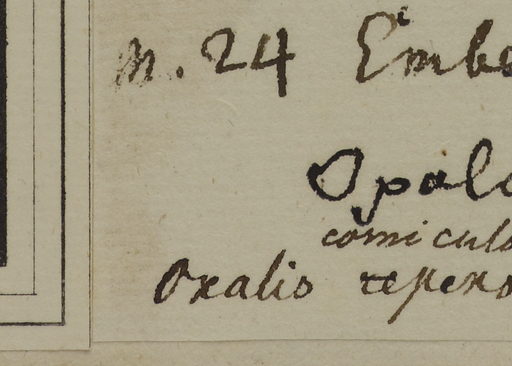 n. 24 Embe
Opalo
corniculo
Oxalis repens